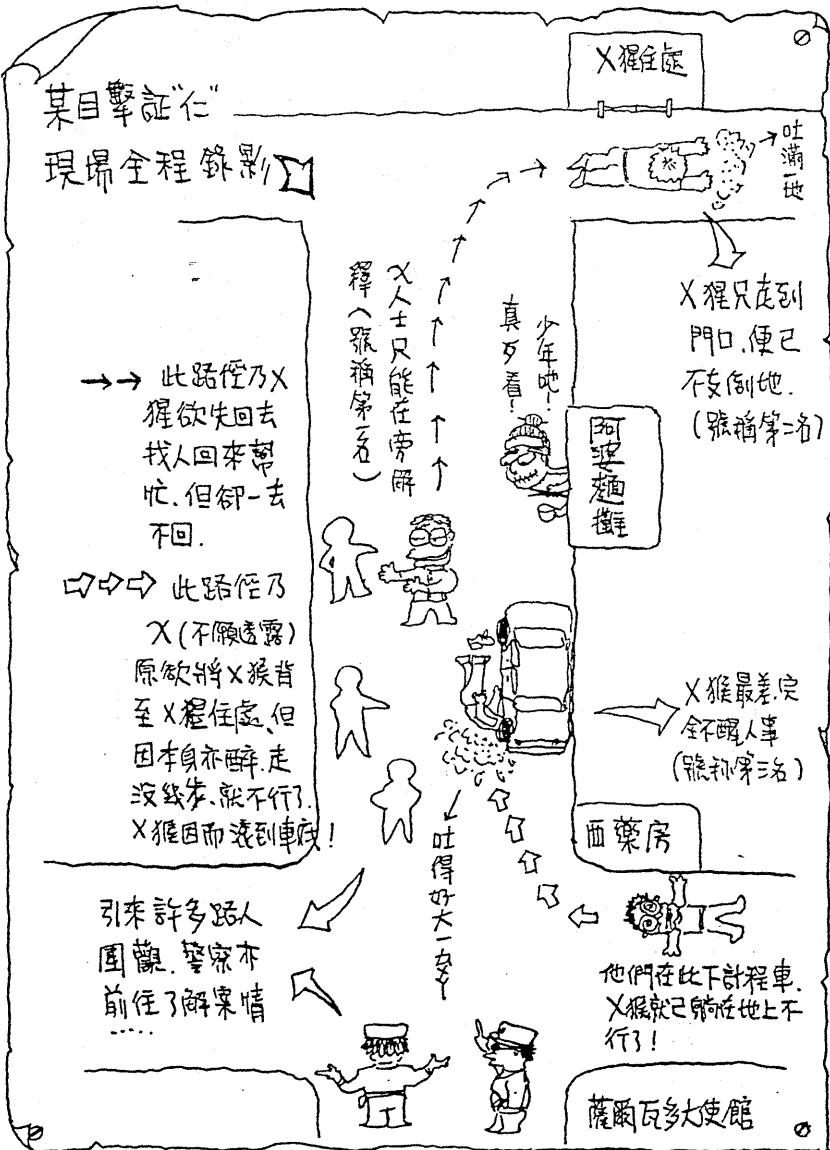 某目擊証"仁"
現場全程錄影
X猩住處
吐滿一地
X猩只走到
門口、便已
不支倒地.
(號稱第二名)
X人士只能在旁解
釋(號稱第一名)
少年吔!
真歹看!
阿婆麵攤
→→ 此路徑乃X
猩欲先回去
找人回來幫
忙、但卻一去
不回.
此路徑乃
X(不願透露)
原欲將X猴背
至X猩住處、但
因本身亦醉、走
沒幾步、就不行了.
X猴因而滾到車底!
X猴最差、完
全不醒人事
(號称第三名)
西藥房
吐得好大一
引來許多路人
圍觀、警察亦
前往了解案情
.....
他們在此下計程車.
X猴就已躺在地上不
行了!
薩爾瓦多大使館